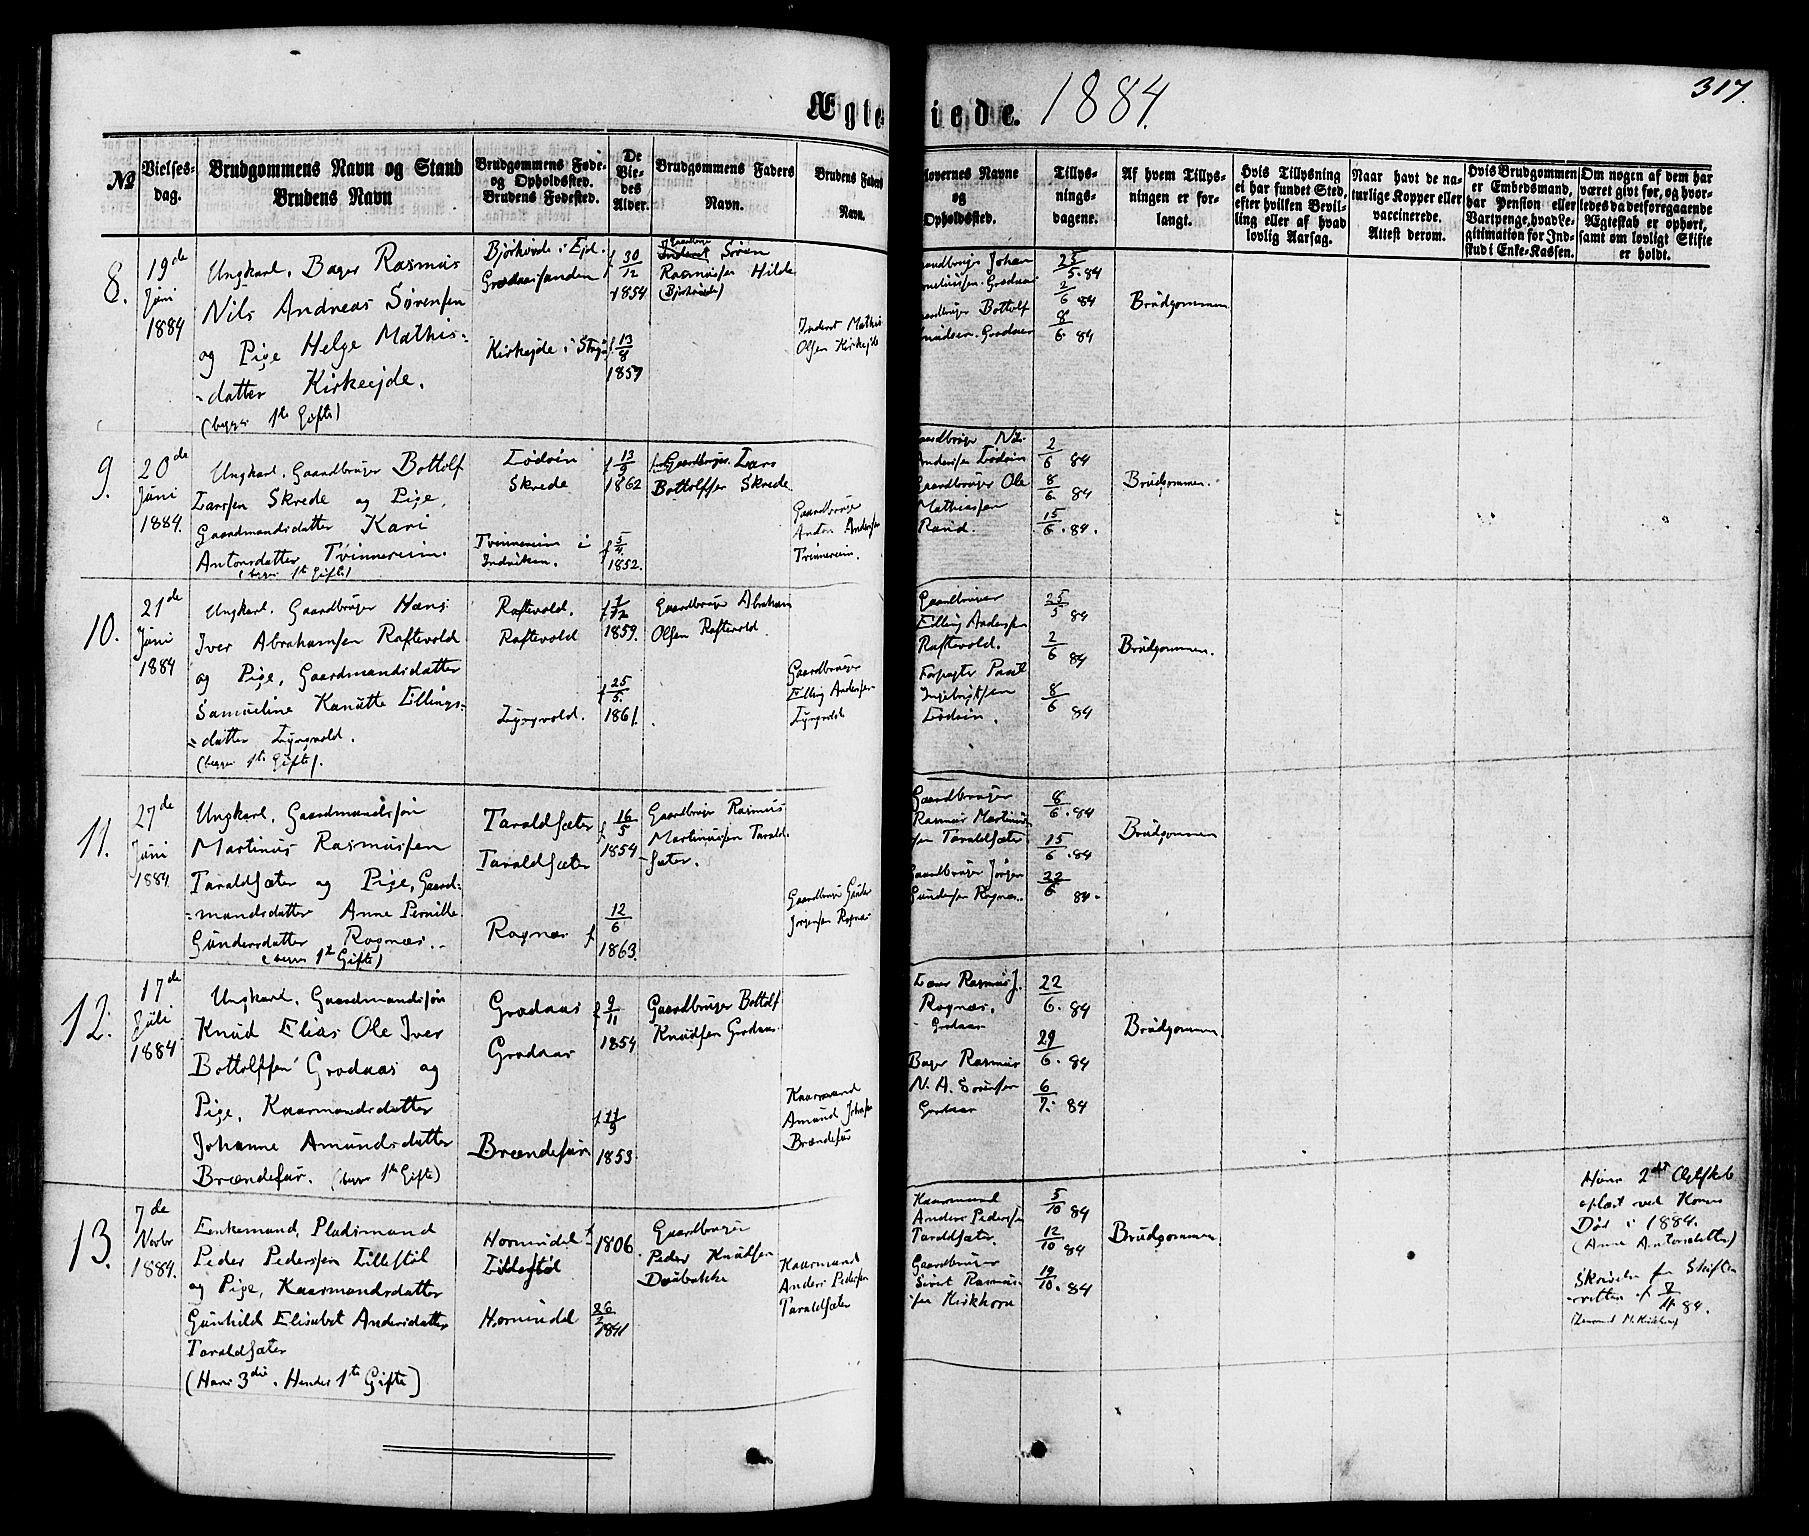 Ægte
iede.
1884.
317.
№
Vielses-
dag.
Brudgommens Navn og Stand
Brudens Navn
Brudgommens Føde-
og Opholdssted.
Brudens Fødested.
De
Vie-
des
Alder.
Brudgommens Faders
Navn.
Brudens Faders
Navn.
lovernes Navne
og
Opholdssted.
Tillys-
nings-
dagene.
Af hvem Tillys-
ningen er for-
langt.
Hvis Tillysning
ei har fundet Sted,
efter hvilken Bevil-
ling eller af hvad
lovlig Aarsag.
Naar havt de na-
turlige Kopper eller
vaccinerede.
Attest derom.
Hvis Brudgommen
er Embedsmand,
har Pension eller
Vartpenge, hvad Le-
gitimation for Ind-
skud i Enke-Kassen.
Om nogen af dem har
været gift før, og hvor-
ledes da det foregaaende
Ægteskab er ophørt,
samt om lovligt Skifte
er holdt.
8.
19de
Juni
1884
Ungkarl, Bager Rasmus
Nils Andreas Sørensen
og Pige Helge Mathis-
-datter Kirkeijde.
(begge 1te Gifte)
Grodaassanden
Kirkejde i Stryn
f. 30/12
1854
f. 13/8
1857
Gaardbr.
Inderst Søren
Rasmussen Hilde
(Bjørkvide)
Inderst Mathis
Olsen Kirkejde
aardbruger Johan
aardbruger Bottolf
nudsen Grodaas
25/5.84
2/6 84
8/6.84
Brudgommen
9.
20de
Juni
1884.
Ungkarl, Gaardbruger Bottolf
Larssen Skrede og Pige,
Gaardmandsdatter Kari
Antonsdatter Tvinnereim.
(begge 1te Gifte)
Lødøin
Skrede
Tvinnereim i
Indviken.
f. 13/9
1862
f. 5/4.
1852.
Gaardbruger Lars
Bottolfsen Skrede
Gaardbruger
Anton Andersen
Tvinnereim.
aardbruger Nils
Anderssen Lødøin
Gaardbruger Ole
Mathiassen
Rand.
2/6 84
8/6. 84
15/6.84.
Brudgommen.
10.
21de
Juni
1884
Ungkarl, Gaardbruger Hans
Iver Abrahamsen Raftevold
og Pige, Gaardmandsdatter
Samueline Kanutte Ellings-
-datter Lyngvold.
(begge 1te Gifte).
Raftevold.
Raftevold
Lyngvold.
f. 7/12
1859.
f. 25/5.
1861.
Gaardbruger Abraham
Olsen Raftevold.
Gaardbruger
Elling Andersen
Lyngvold
Gaardbruger
Elling Anderssen
Raftevold.
Forpagter Paul
Ingebrigtsen
Lødøin.
25/5 84
2/6 84
8/6 84
Brudgommen.
11.
27de
Juni
1884.
Ungkarl, Gaardmandssøn
Martinus Rasmussen
Taraldsæter og Pige, Gaard-
-mandsdatter Anne Pernille
Gundersdatter Rognæs.
(begge 1te Gifte)
Taraldsæter
Taraldsæter
Rognæs
f. 16/5
1854
f. 12/6
1863.
Gaardbruger Rasmus
Martinussen Tarald-
-sæter.
Gaardbruger Gunder
Jørgensen Rognæs
Gaardbruger
Rasmus Martinus-
sen Taraldsæter.
Gaardbruger Jørgen
Gundersen Rognæs.
8/6.84
15/6.84
22/6 84.
Brudgommen
12.
17de
Juli
1884.
Ungkarl, Gaardmandssøn
Knud Elias Ole Iver
Bottolfsen Grodaas og
Pige, Kaarmandsdatter
Johanne Amundsdatter
Brændefur. (begge 1te Gifte)
Grodaas
Grodaas
Brændefur
f. 9/11
1854
f. 11/9
1853.
Gaardbruger Bottolf
Knudsen Grodaas
Kaarmand
Amund Johans
Brændefur
Rognæs.
Grodaas
Bager Rasmus
N. A. Sørensen
Grodaas
22/6.84
29/6.84
6/7.84
Brudgommen
13.
7de
Novbr
1884.
Enkemand, Pladsmand
Peder Pederssen Lillestøl
og Pige, Kaarmandsdatter
Gunhild Elisabet Andersdatter
Taraldsæter
(Hans 3die, Hendes 1te Gifte)
Hornindal
Lillestøl
Hornindal
1806.
26/2
1841
Gaardbruger
Peder Knudsen
Kaarmand
Anders Pedersen
Taraldsæter
Kaarmand
Anders Pederssen
Taraldsæter.
Gaardbruger
Sivert Rasmus-
sen Kirkhorn
5/10 84
12/10 84
19/10.84
Brudgommen
Hans 2det Ægteskab
opløst ved Konens
Død i 1884.
(Anne Antonsdatter)
Skrivelse fra Skifte-
-retten af 7/11 84.